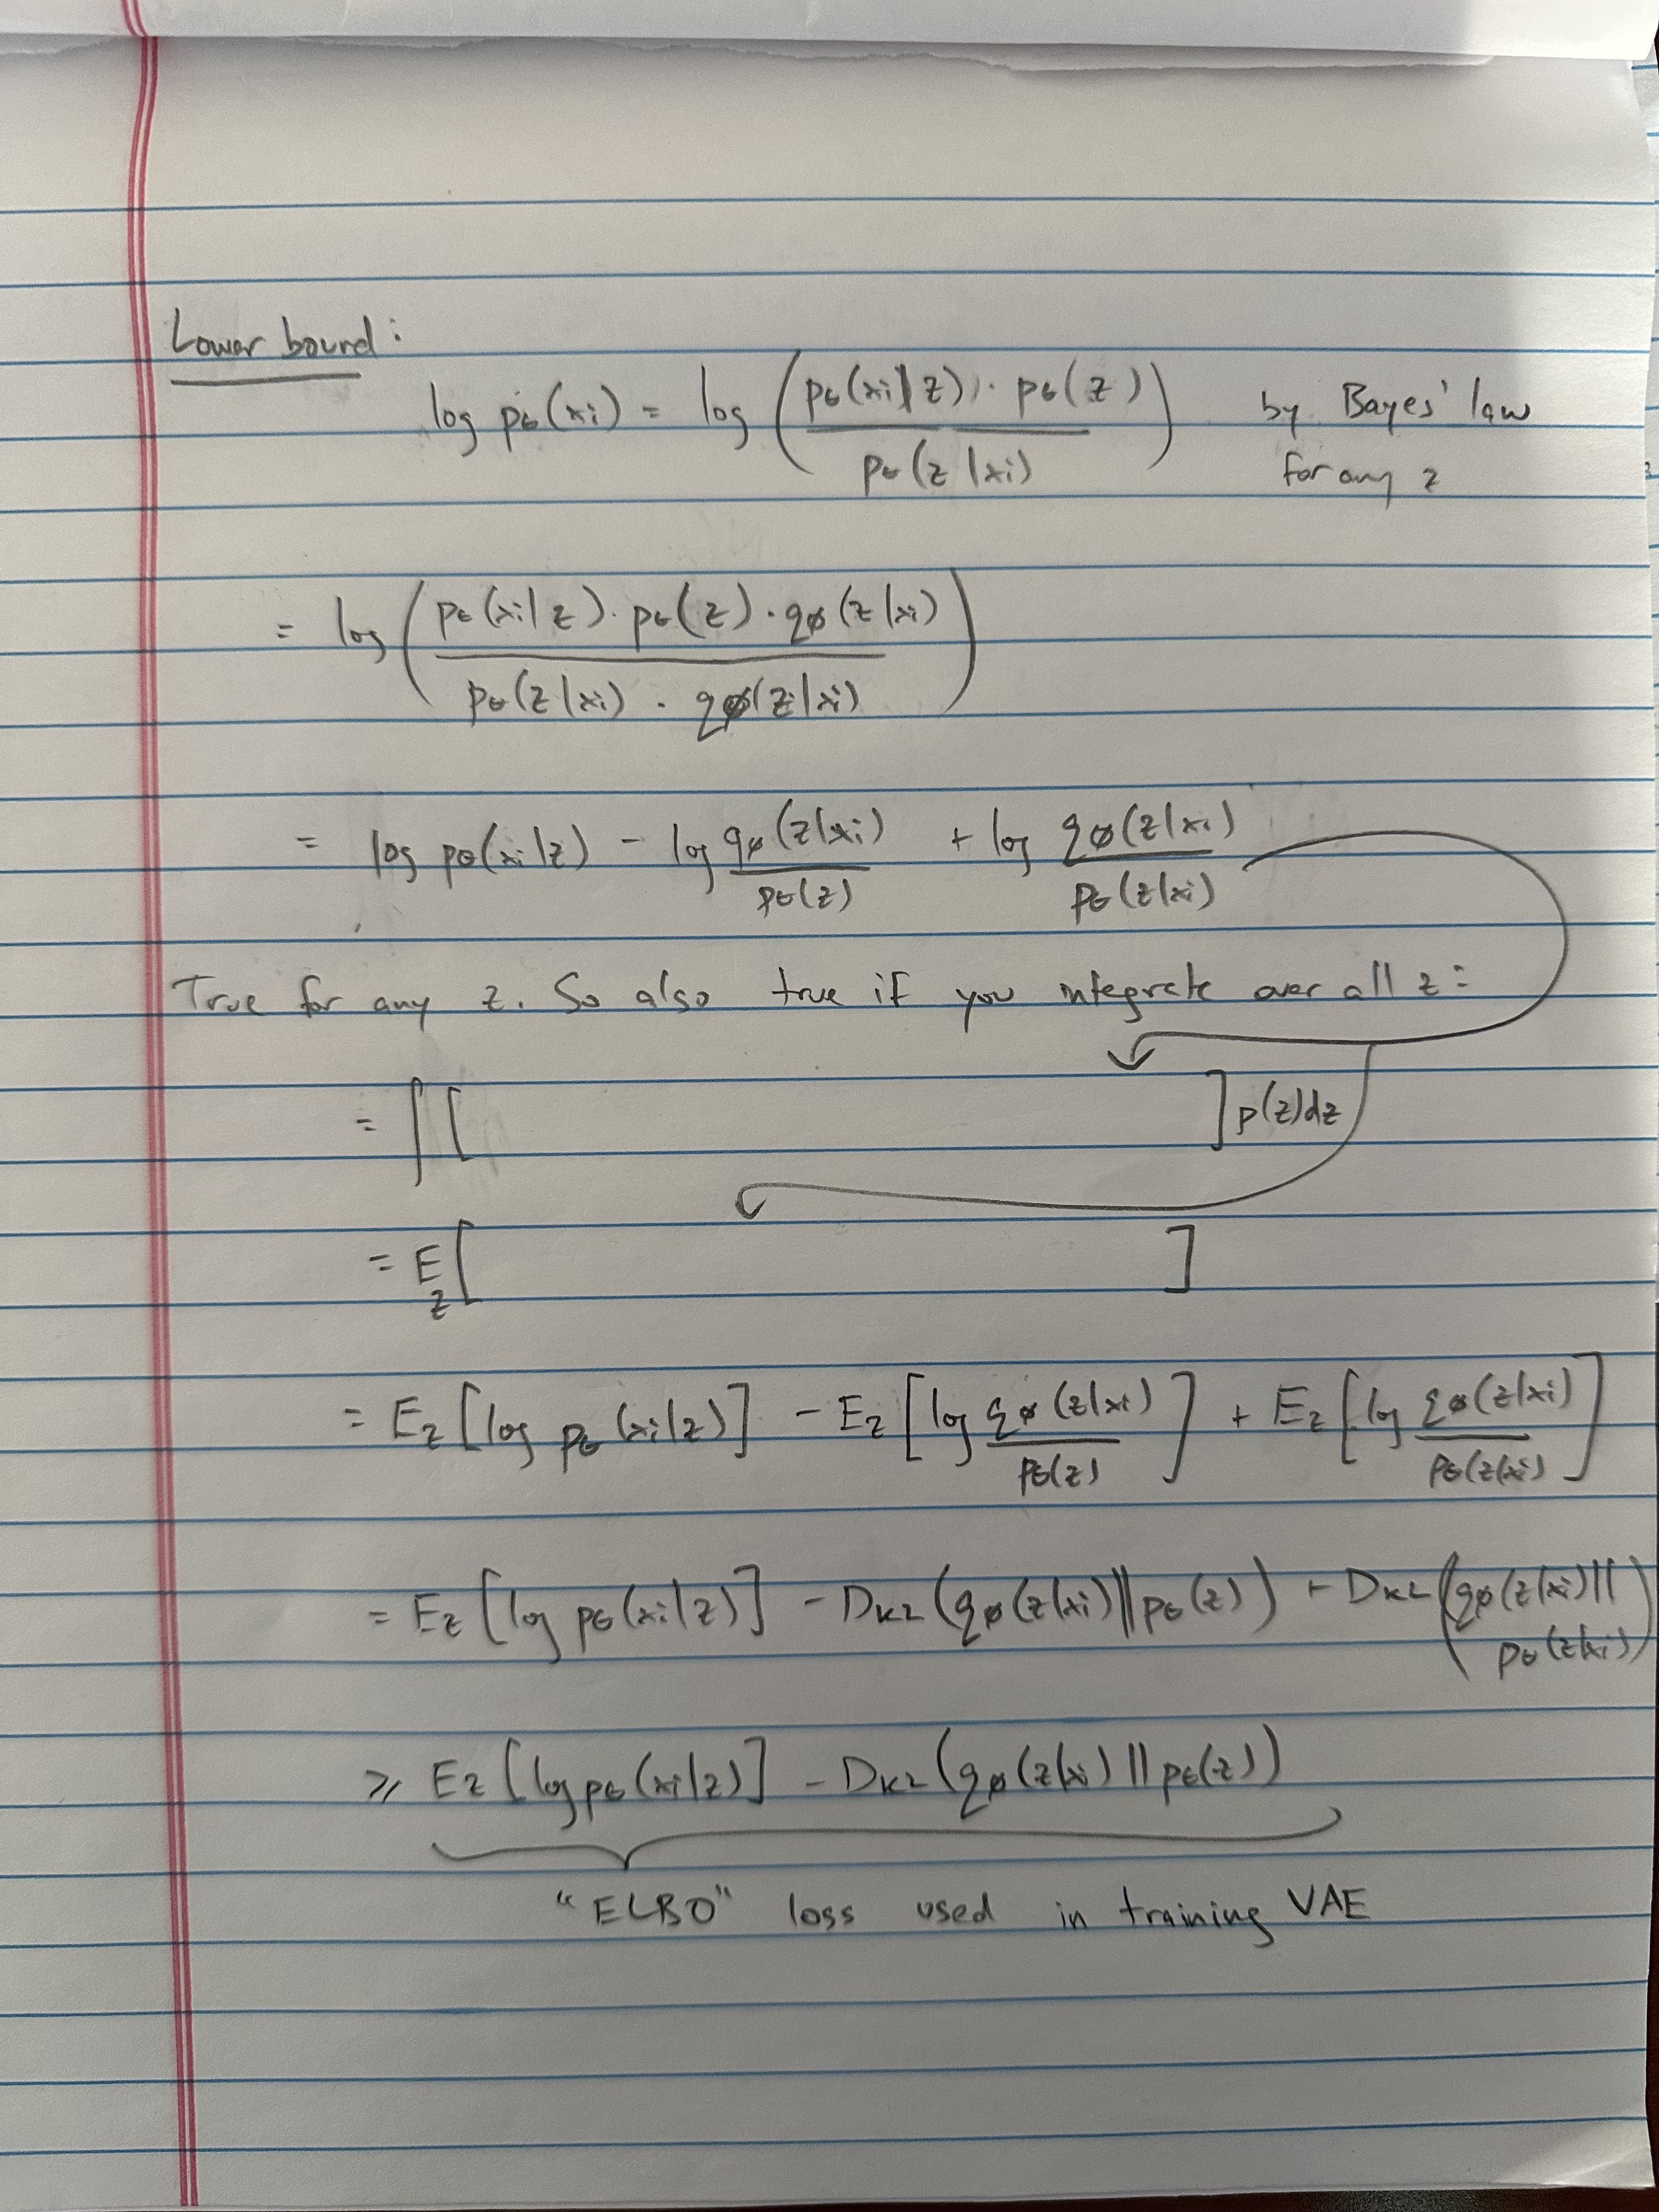 Lower bound:
log pθ(xi) = log ( pθ(xi|z) · pθ(z) / pθ(z|xi) ) by Bayes' law
for any z
= log ( pθ(xi|z) · pθ(z) · qφ(z|xi) / pθ(z|xi) · qφ(z|xi) )
= log pθ(xi|z) - log qφ(z|xi) / pθ(z) + log qφ(z|xi) / pθ(z|xi)
True for any z. So also true if you integrate over all z:
= ∫ [ ] p(z)dz
= E_z [ ]
= Ez [log pθ(xi|z)] - Ez [log qφ(z|xi) / pθ(z)] + Ez [log qφ(z|xi) / pθ(z|xi)]
= Ez [log pθ(xi|z)] - DKL (qφ(z|xi) || pθ(z)) + DKL (qφ(z|xi) || pθ(z|xi))
≥ Ez [log pθ(xi|z)] - DKL (qφ(z|xi) || pθ(z))
"ELBO" loss used in training VAE